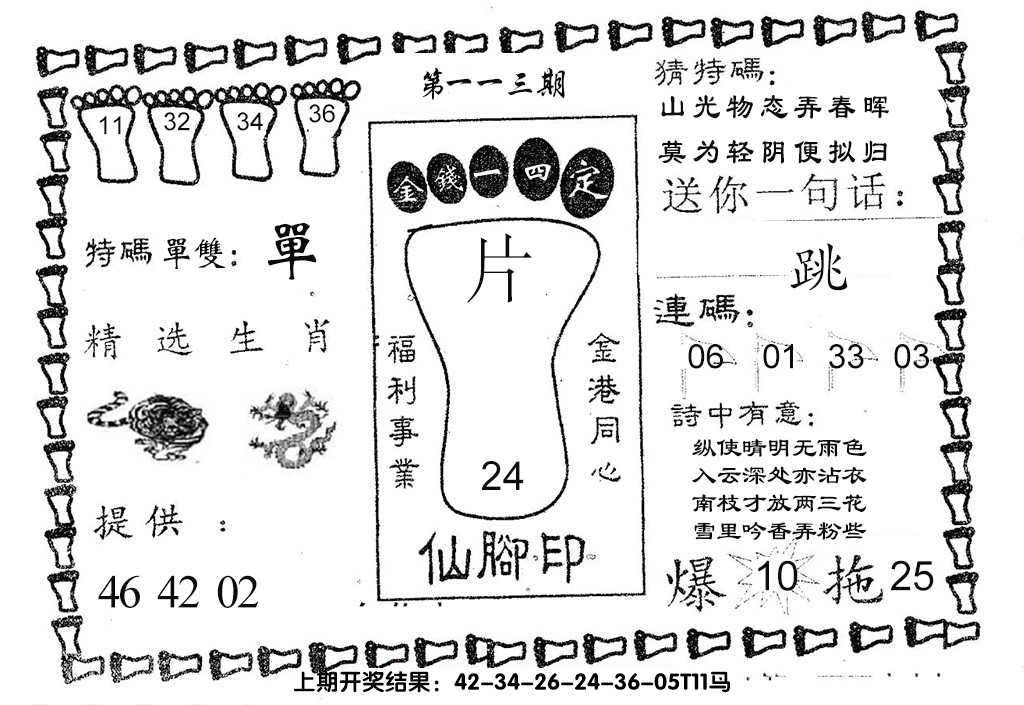 第一一三期
11 32 34 36
特碼單雙：單
精选生肖
提供：
46 42 02
金錢一四定
片
福利事業
金港同心
24
仙腳印
猜特碼：
山光物态弄春晖
莫为轻阴便拟归
送你一句话：
跳
連碼：
06 01 33 03
詩中有意：
纵使晴明无雨色
入云深处亦沾衣
南枝才放两三花
雪里吟香弄粉些
爆 10 拖 25
上期开奖结果：42-34-26-24-36-05T11马